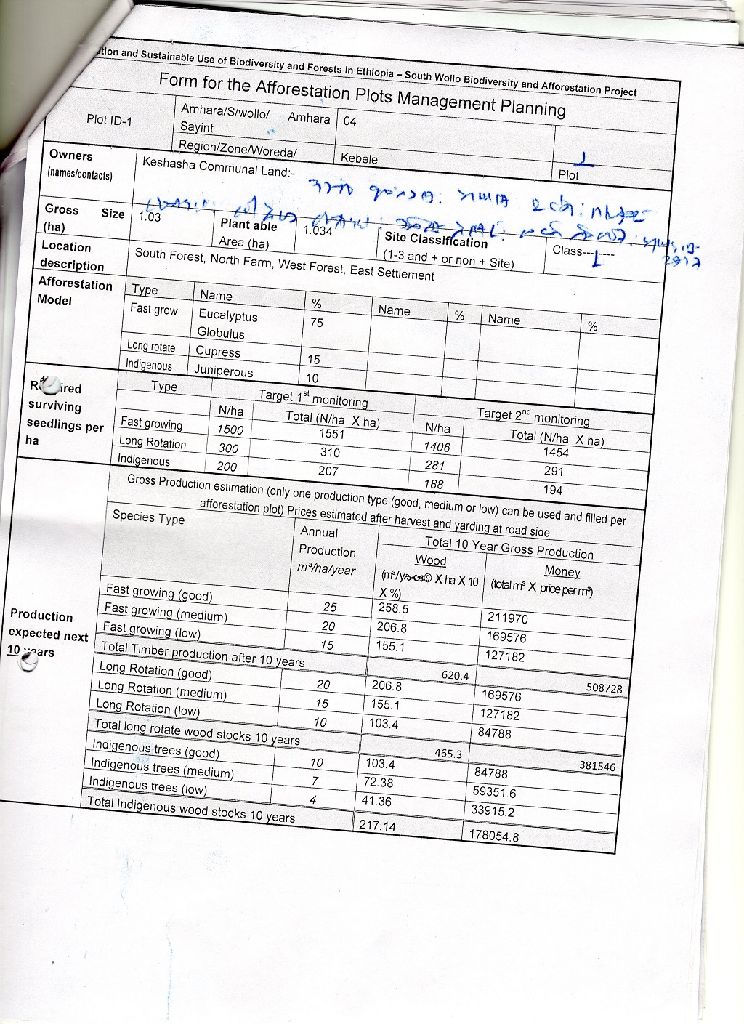 ation and Sustainable Use of Biodiversity and Forests in Ethiopia – South Wollo Biodiversity and Afforestation Project
Form for the Afforestation Plots Management Planning
Plot ID-1
Amhara/S/wollo/ Amhara
Sayint
C4
1
Region/Zone/Woreda/
Kebele
Plot
Owners
(names/contacts)
Keshasha Communal Land:-
Gross Size
(ha)
1.03
Plant able
Area (ha)
1.034
Site Classification
(1-3 and + or non + Site)
Class---1
Location
description
South Forest, North Farm, West Forest, East Settlement
Afforestation
Model
Type Name % Name % Name %
Fast grow Eucalyptus
Globulus 75
Long rotate Cupress 15
Indigenous Juniperous 10
surviving
seedlings per
ha
Type Target 1st monitoring Target 2nd monitoring
N/ha Total (N/ha X ha) N/ha Total (N/ha X ha)
Fast growing 1500 1551 1406 1454
Long Rotation 300 310 281 291
Indigenous 200 207 188 194
Production
expected next
10 years
Gross Production estimation (only one production type (good, medium or low) can be used and filled per
afforestation plot) Prices estimated after harvest and yarding at road side
Species Type
Annual
Production
m³/ha/year
Total 10 Year Gross Production
Wood Money
X ha X 10
X %)
(total m³ X price per m³)
Fast growing (good) 25 258.5 211970
Fast growing (medium) 20 206.8 169576
Fast growing (low) 15 155.1 127182
Total Timber production after 10 years 620.4 508728
Long Rotation (good) 20 206.8 169576
Long Rotation (medium) 15 155.1 127182
Long Rotation (low) 10 103.4 84788
Total long rotate wood stocks 10 years 465.3 381546
Indigenous trees (good) 10 103.4 84788
Indigenous trees (medium) 7 72.38 59351.6
Indigenous trees (low) 4 41.36 33915.2
Total Indigenous wood stocks 10 years 217.14 178054.8